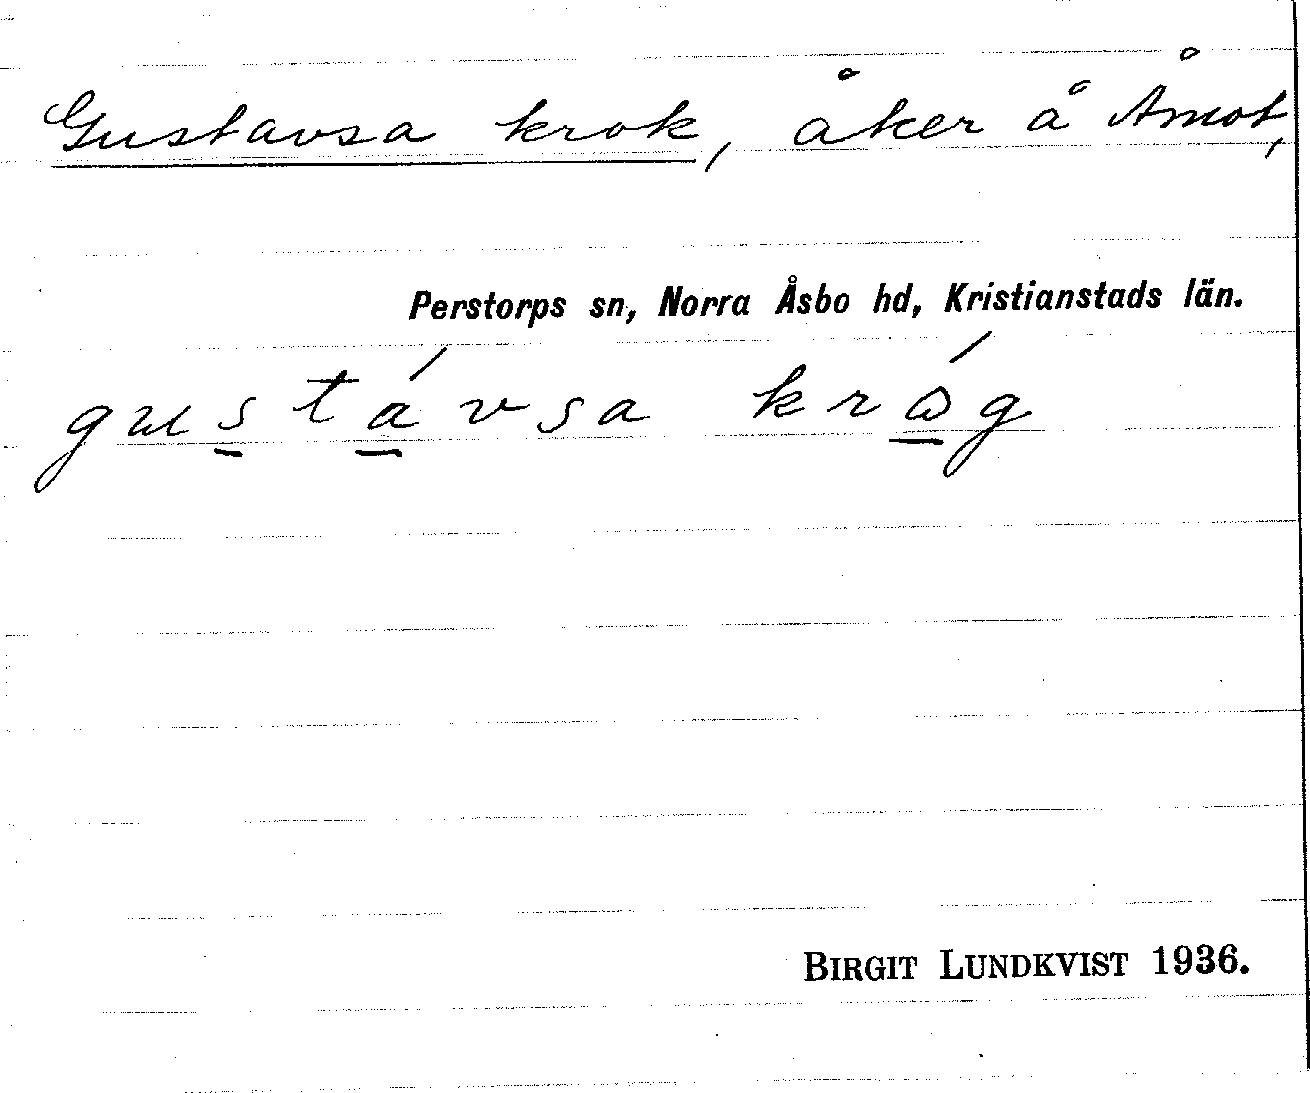 Gustavsa krok, åker å Åmot,
Perstorps sn, Norra Åsbo hd, Kristianstads län.
gustávsa krǿg
BIRGIT LUNDKVIST 1936.